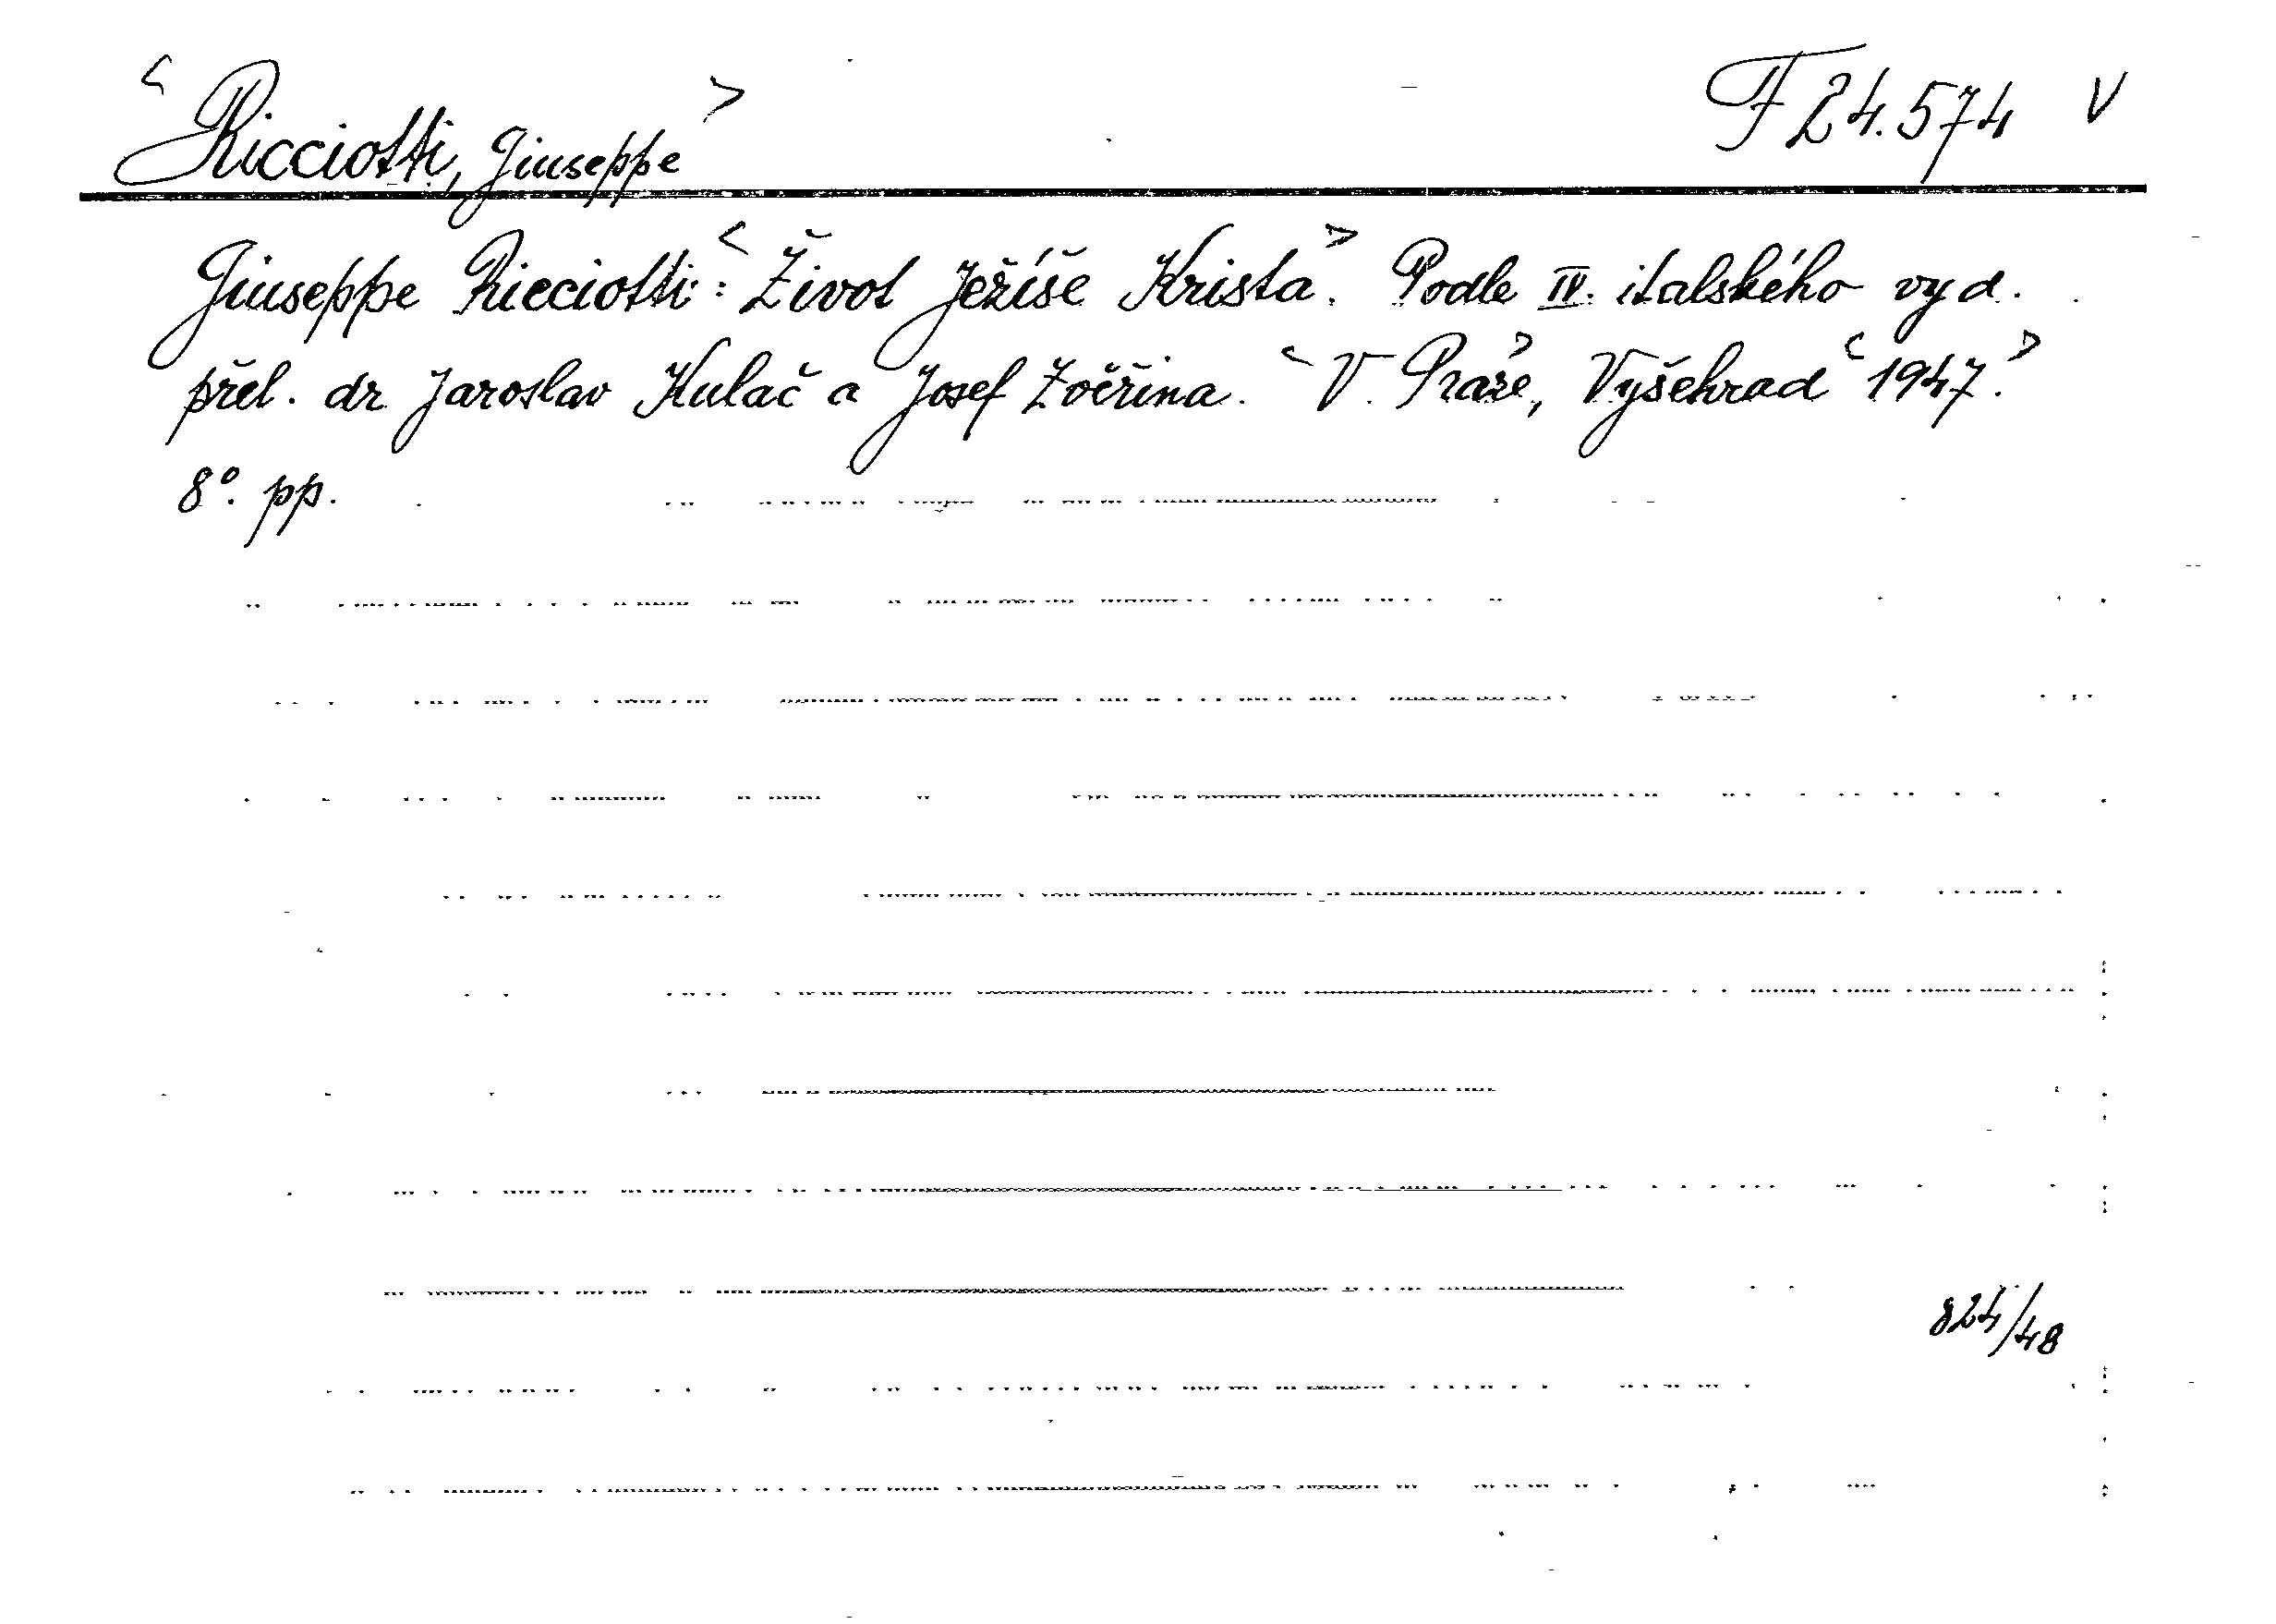 <Ricciotti, Giuseppe> F 24.574 V
Giuseppe Ricciotti: <Život Ježíše Krista>. Podle IV. italského vyd.
přel. dr Jaroslav Kulač a Josef Zvěřina. <V Praze>, Vyšehrad <1947.>
8°. pp.
824/48